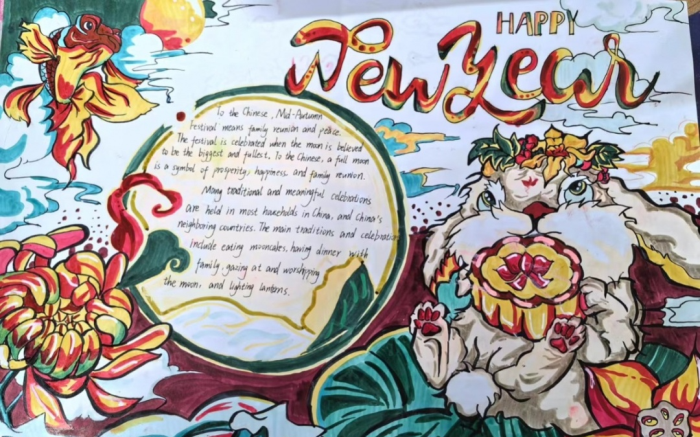 HAPPY
New Year
To the Chinese, Mid-Autumn
Festival means family reunion and peace.
The festival is celebrated when the moon is believed
to be the biggest and fullest. To the Chinese, a full moon
is a symbol of prosperity, happiness, and family reunion.
Many traditional and meaningful celebrations
are held in most households in China, and China's
neighboring countries. The main traditions and celebrations
include eating mooncakes, having dinner with
family, gazing at and worshipping
the moon, and lighting lanterns.